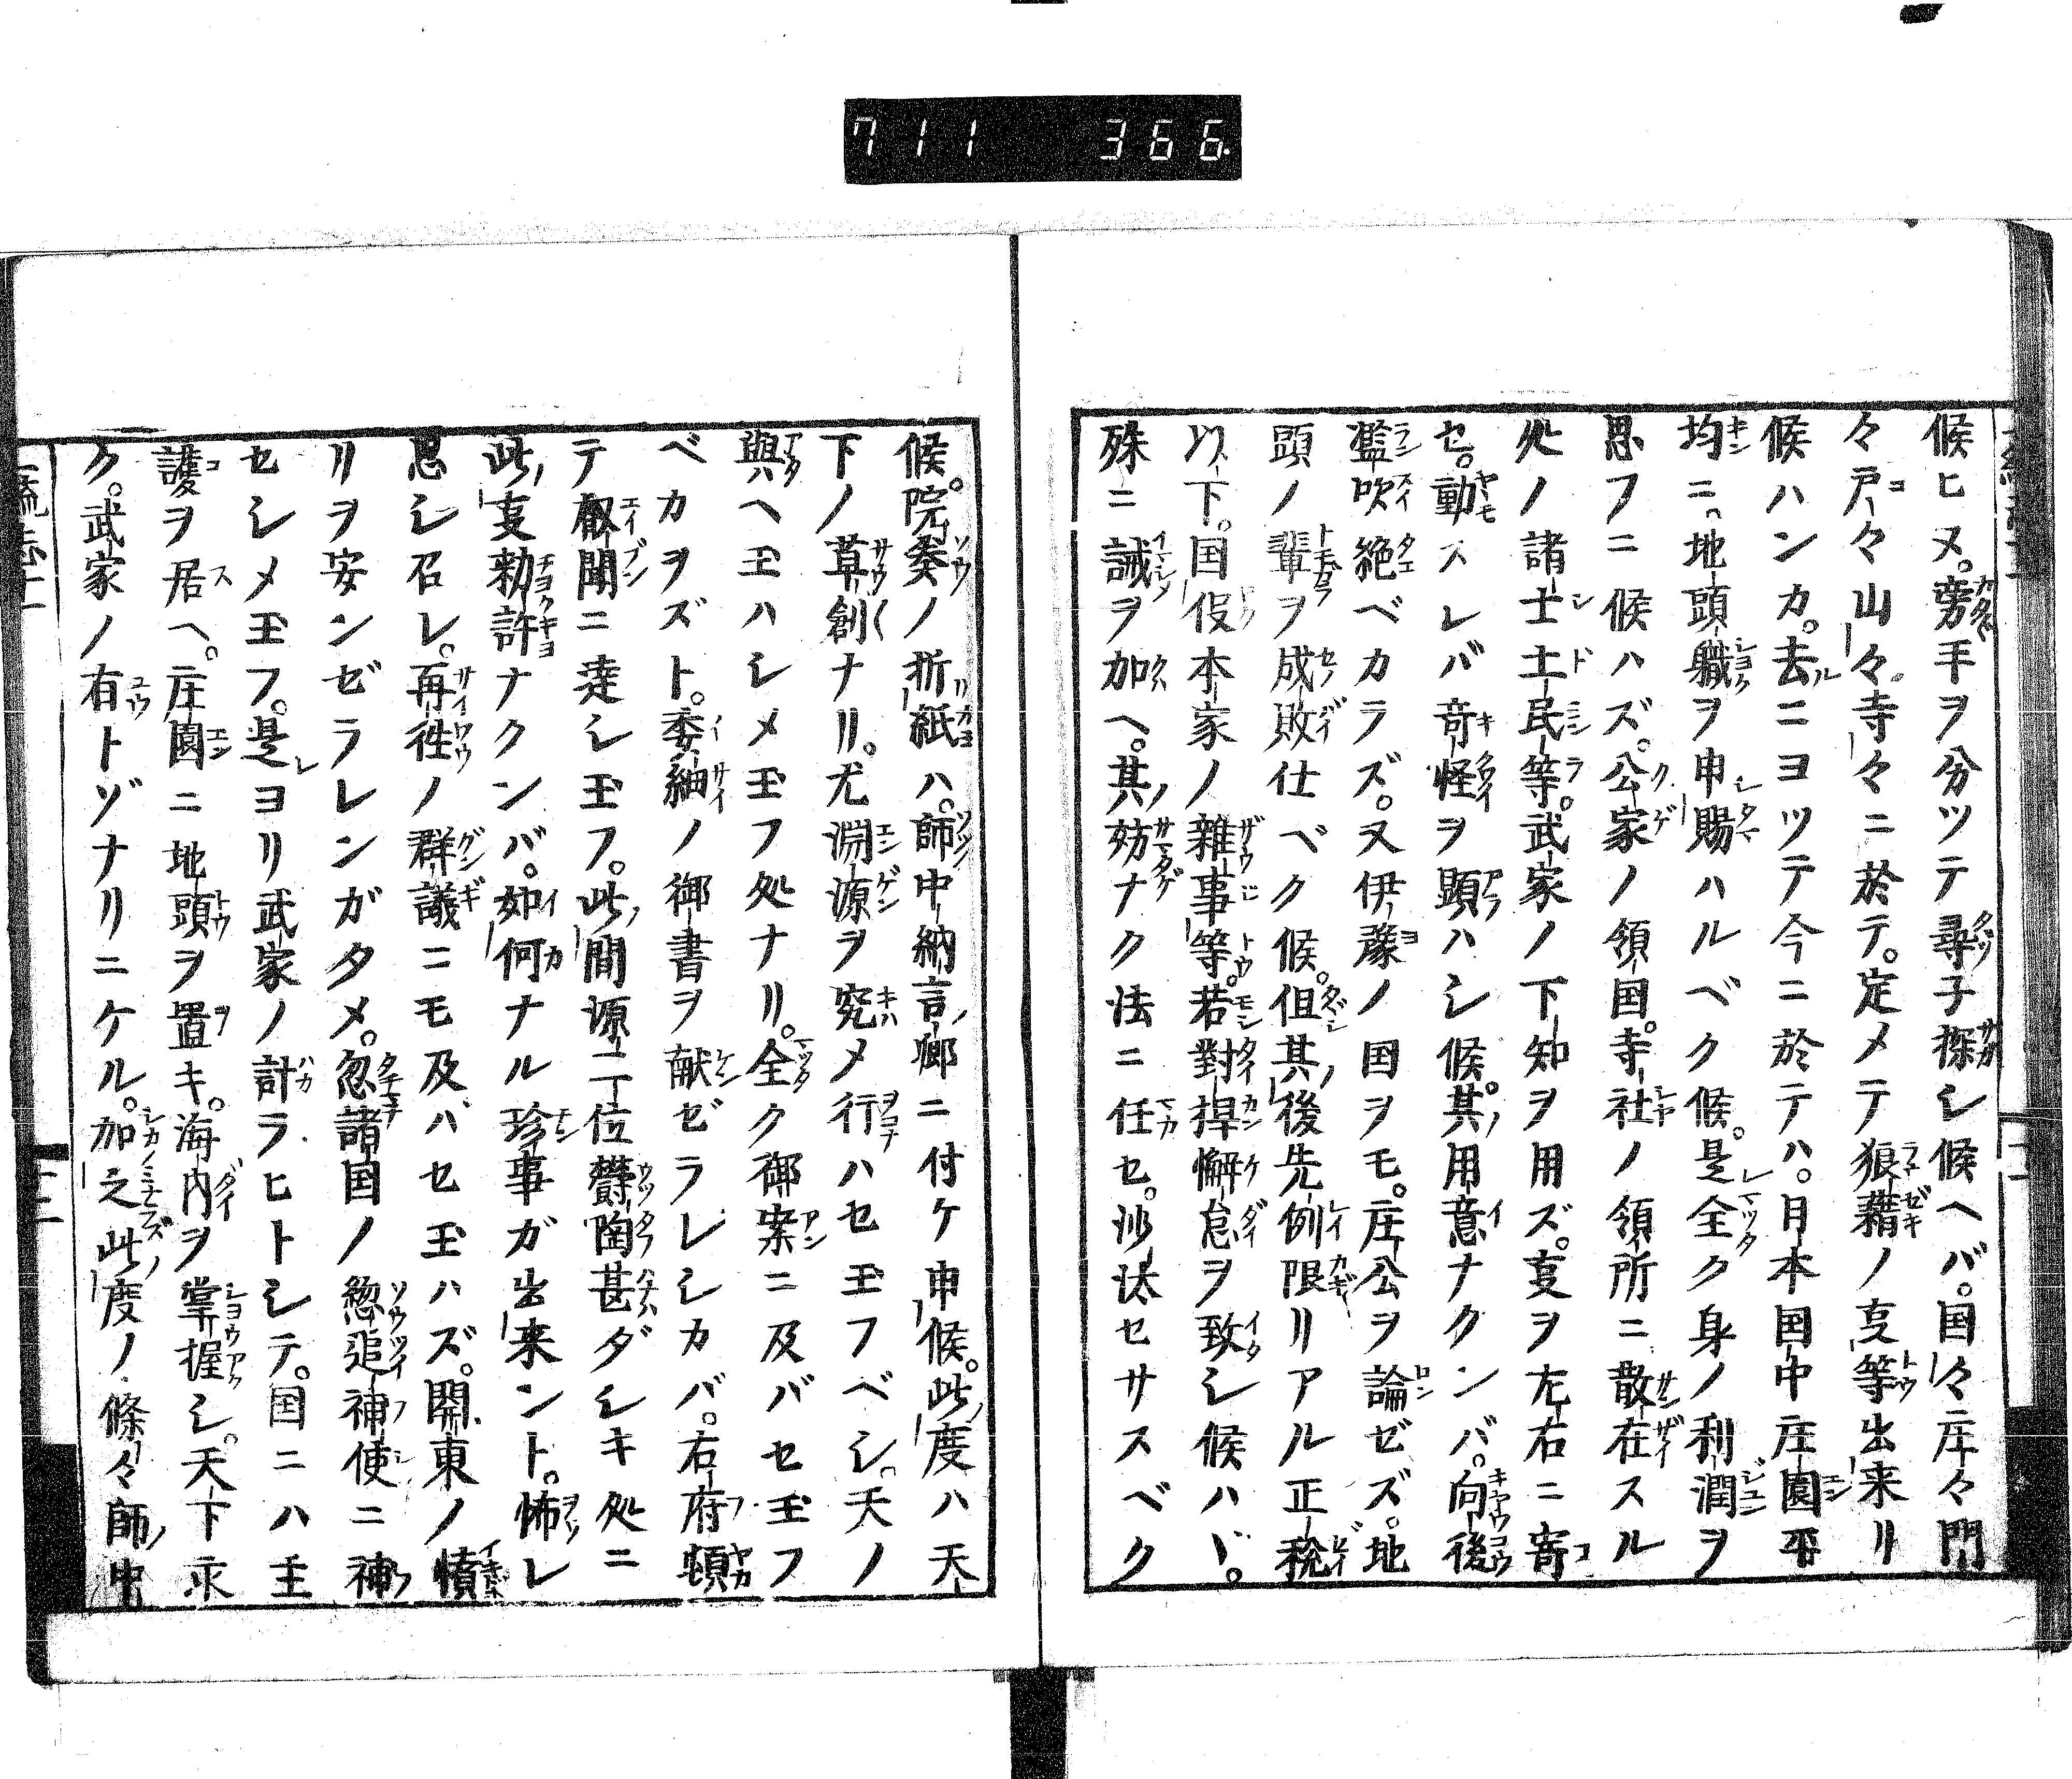 711 366
候ヒヌ。旁手ヲ分ツテ尋子探シ候ヘバ。国々庄々門
々戸々山々寺々ニ於テ。定メテ狼藉ノ㕝等出来リ
候ハンカ。去ニヨツテ今ニ於テハ。日本国中庄園平
均ニ。地頭職ヲ申賜ハルベク候。是全ク身ノ利潤ヲ
思フニ候ハズ。公家ノ領国。寺社ノ領所ニ散在スル
処ノ諸士土民等。武家ノ下知ヲ用ズ。㕝ヲ左右ニ寄
セ。動スレバ竒怪ヲ顕ハシ候。其用意ナクンバ。向後
濫吹絶ベカラズ。又伊豫ノ国ヲモ。庄公ヲ論ゼズ。地
頭ノ輩ヲ成敗仕ベク候。但其後先例限リアル正税
以下。国役本家ノ雜事等。若對捍懈怠ヲ致シ候ハヾ。
殊ニ誡ヲ加ヘ。其妨ナク法ニ任セ。沙汰セサスベク
候。院奏ノ折紙ハ。師中納言ノ郷ニ付ケ申候。此度ハ天
下ノ草創ナリ。尤淵源ヲ究メ行ハセ玉フベシ。天ノ
與ヘ玉ハシメ玉フ処ナリ。全ク御案ニ及バセ玉フ
ベカヲズト。委細ノ御書ヲ献ゼラレシカバ。右府頓
テ叡聞ニ達シ玉フ。此間源二位欝陶甚ダシキ処ニ
此㕝勅許ナクンバ。如何ナル珍事ガ出来ント。怖レ
思シ召レ。再徃ノ群議ニモ及バセ玉ハズ。関東ノ憤
リヲ安ンゼラレンガタメ。忽諸国ノ惣追補使ニ補
セシメ玉フ。是ヨリ武家ノ計ラヒトシテ。国ニハ主
護ヲ居ヘ。庄園ニ地頭ヲ置キ。海内ヲ掌握シ。天下永
ク。武家ノ有トゾナリニケル。加之此度ノ條々師中